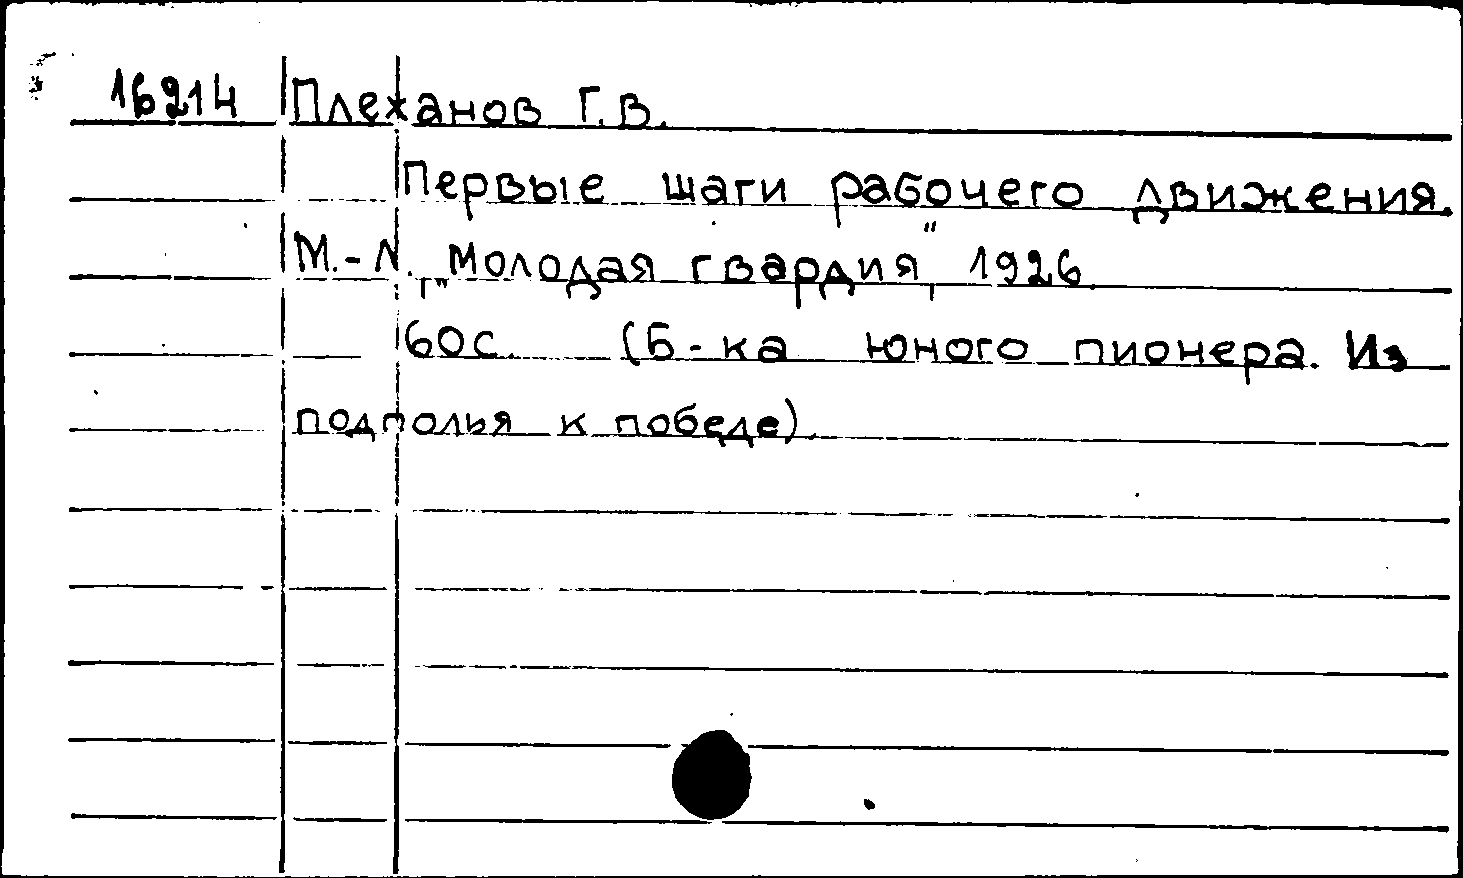 16214 Плеханов Г.В.
Первые шаги рабочего движения.
М.-Л., „Молодая гвардия", 1926.
60с. (Б-ка юного пионера. Из
подполья к победе).